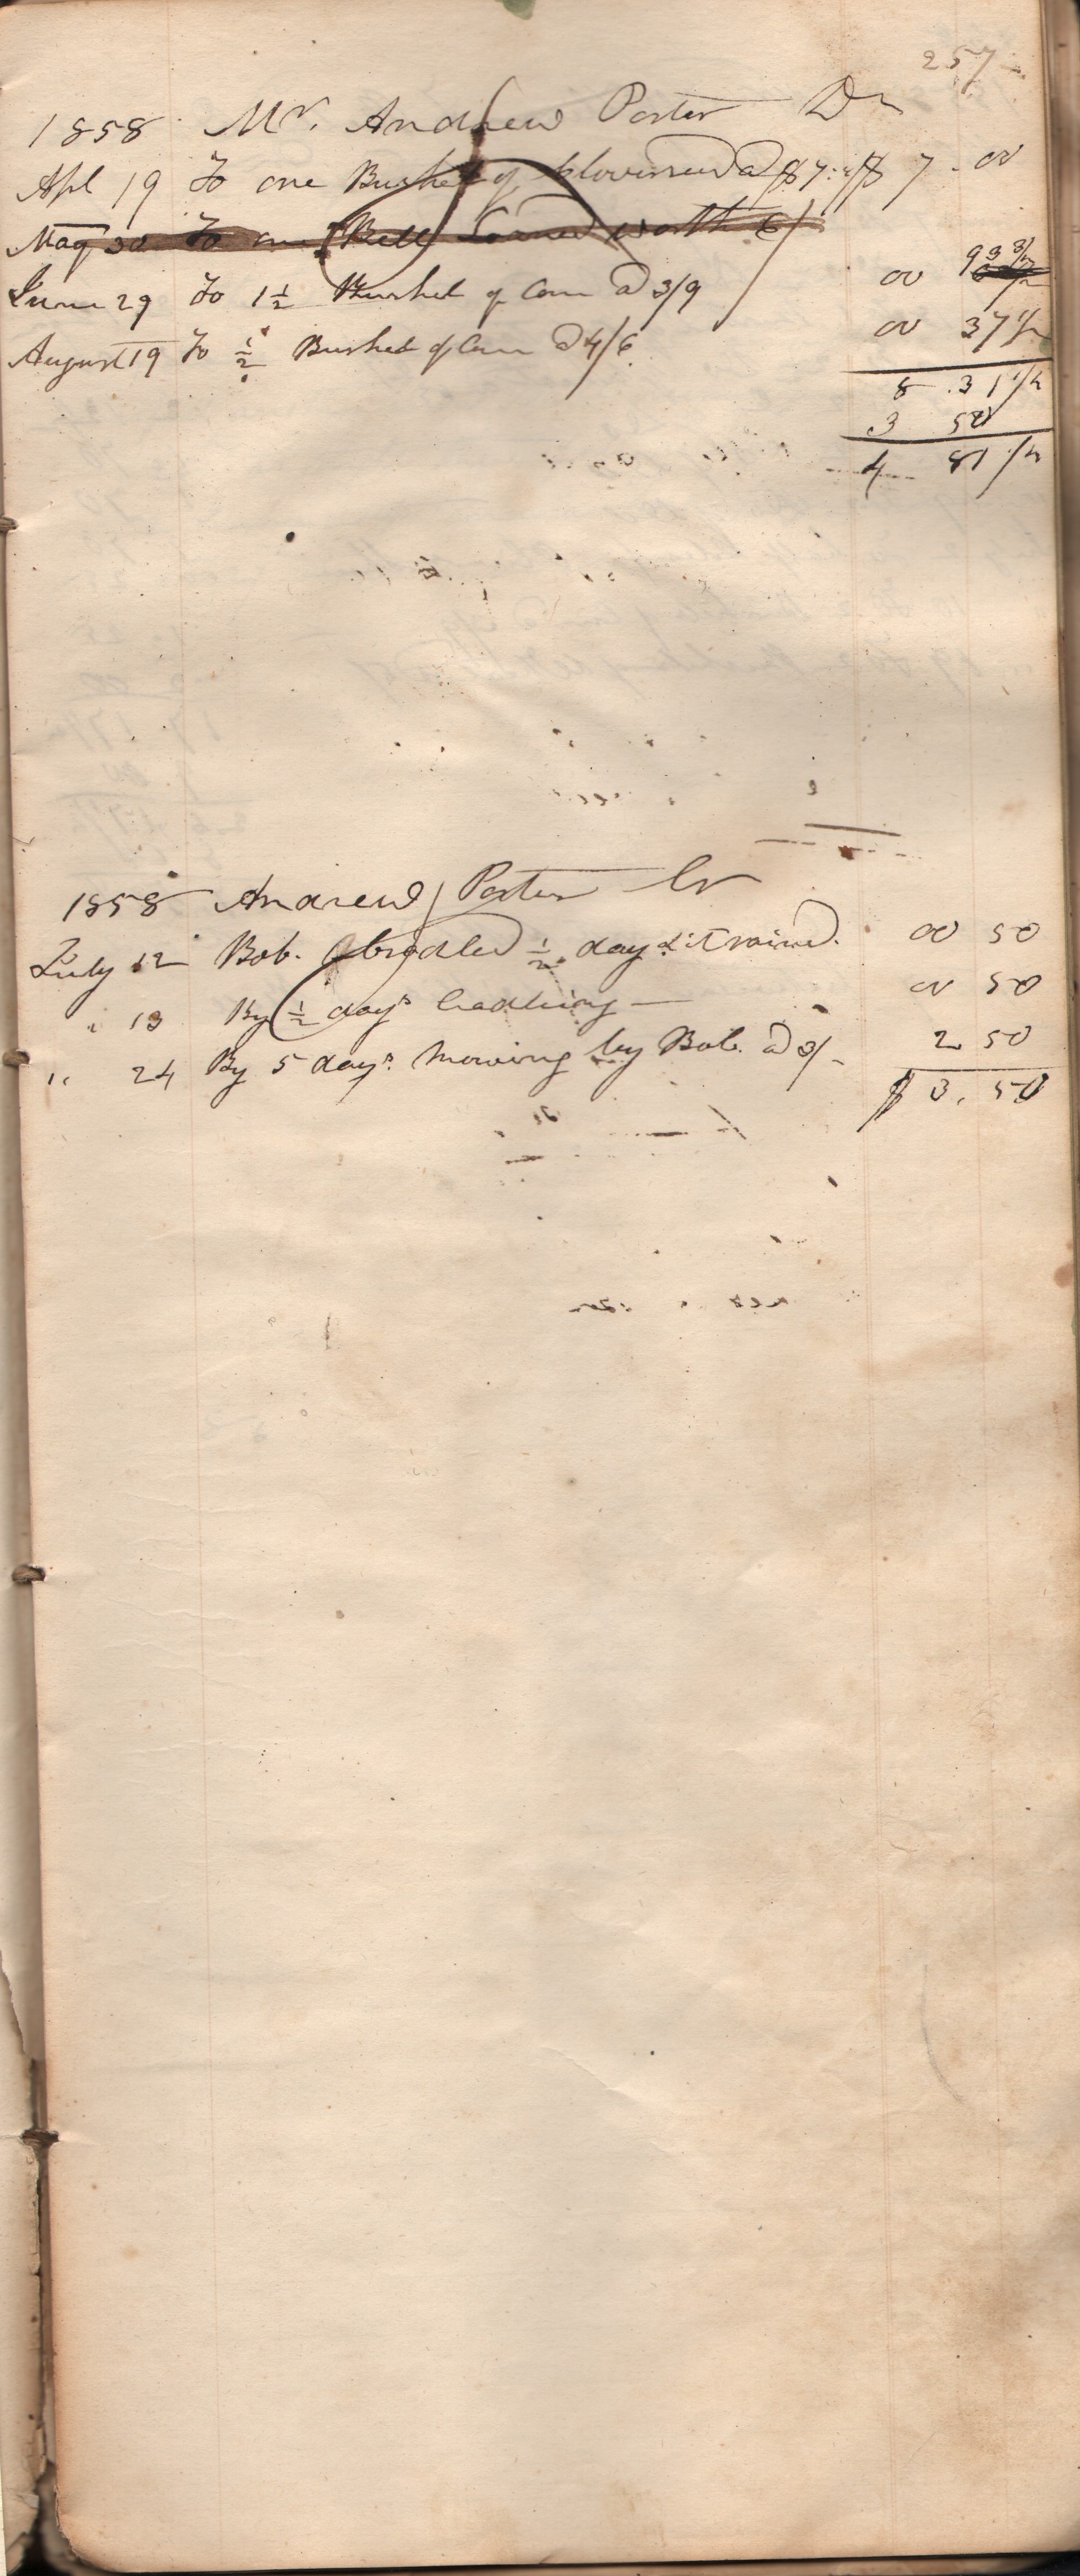 257
1858 Mr. Andrew Porter Dr
Apl 19 To one Bushel of Cloverseed a $7: $ 7 - 00
May 30 To one Bell Loaned worth 6/
June 29 To 1 1/2 Bushel of Corn a 3/9 00 93 3/4
August 19 To 1/2 Bushel of Corn a 4/6 00 37 1/2
8 . 31 1/4
3 50
4 81 1/4
1858 Andrew Porter Cr
July 12 Bob. Cradled 1/2 day & it rained. 00 50
" 13 By 1/2 days Cradling — 00 50
" 24 By 5 days mowing by Bob. a 3/- 2 50
$ 3. 50